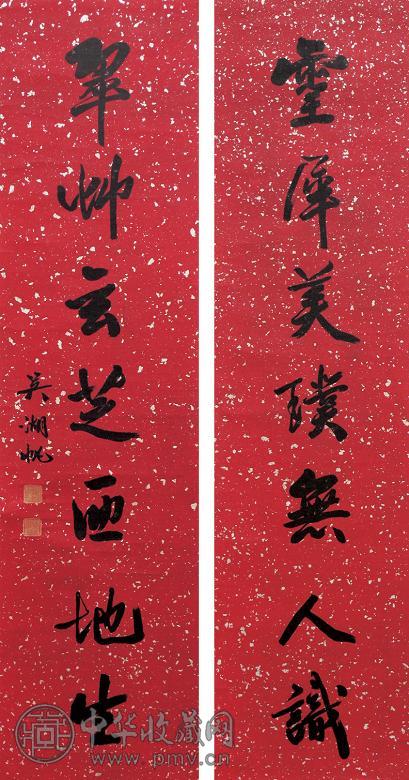 靈犀美璞無人識
翠艸玄芝匝地生
吳湖帆
中华收藏网
www.pmv.cn